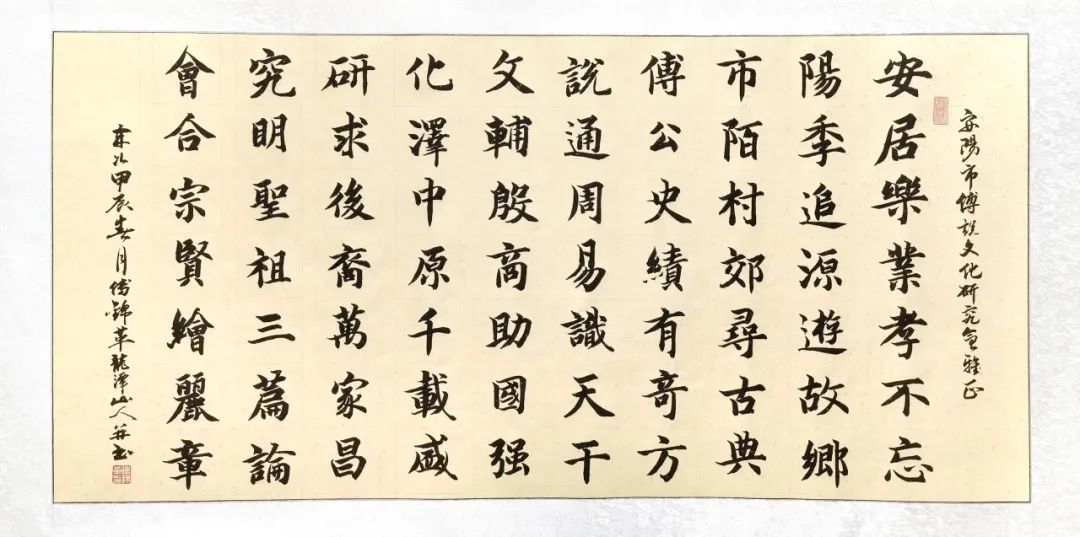 安陽市傅説文化研究會雅正
安居樂業孝不忘
陽季追源遊故鄉
市陌村郊尋古典
傅公史績有奇方
說通周易識天干
文輔殷商助國强
化澤中原千載盛
研求後裔萬家昌
究明聖祖三篇論
會合宗賢繪麗章
甲辰春月傅錦華龍潭山人并書